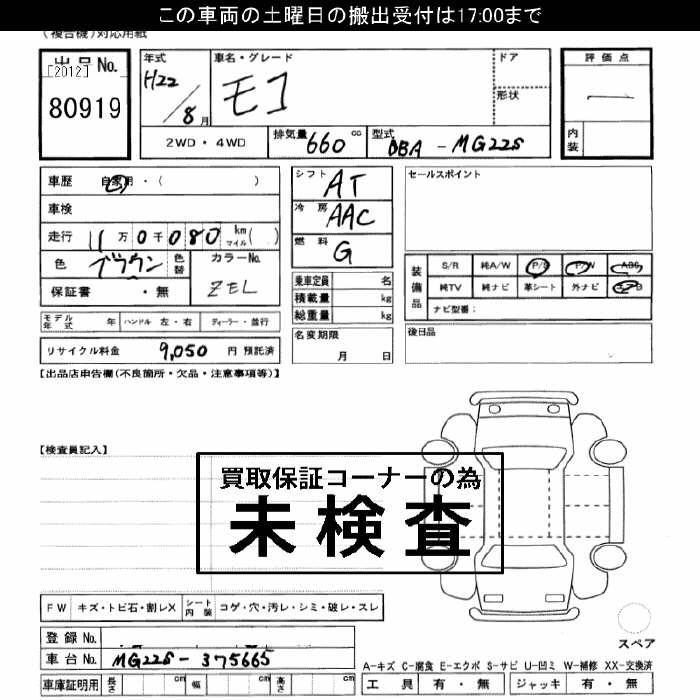 この車両の土曜日の搬出受付は17:00まで
(複合機)対応用紙
出品No.
[2012]
80919
年式 H22/8月
車名・グレード モコ
ドア
形状
評価点
内装
2WD・4WD
排気量 660 cc
型式 DBA - MG22S
車歴 自家用・( )
車検
走行 11万0千080 km マイル( )
色 ブラウン 色替
カラーNo. ZEL
保証書 ・無
シフト AT
冷房 AAC
燃料 G
乗車定員 名
積載量 kg
総重量 kg
セールスポイント
装備品
S/R 純A/W P/S P/W ABS
純TV 純ナビ 革シート 外ナビ エアB
ナビ型番:
モデル年式 年 ハンドル 左・右 ディーラー・並行
名変期限 月 日
後日品
リサイクル料金 9,050 円 預託済
【出品店申告欄(不良箇所・欠品・注意事項等)】
【検査員記入】
買取保証コーナーの為
未検査
FW キズ・トビ石・割レX シート内装 コゲ・穴・汚レ・シミ・破レ・スレ
スペア
登録No.
車台No. MG22S-375665
A-キズ C-腐食 E-エクボ S-サビ U-凹ミ W-補修 XX-交換済
車庫証明用 長さ cm 幅 cm 高さ cm
工具 有・無 ジャッキ 有・無